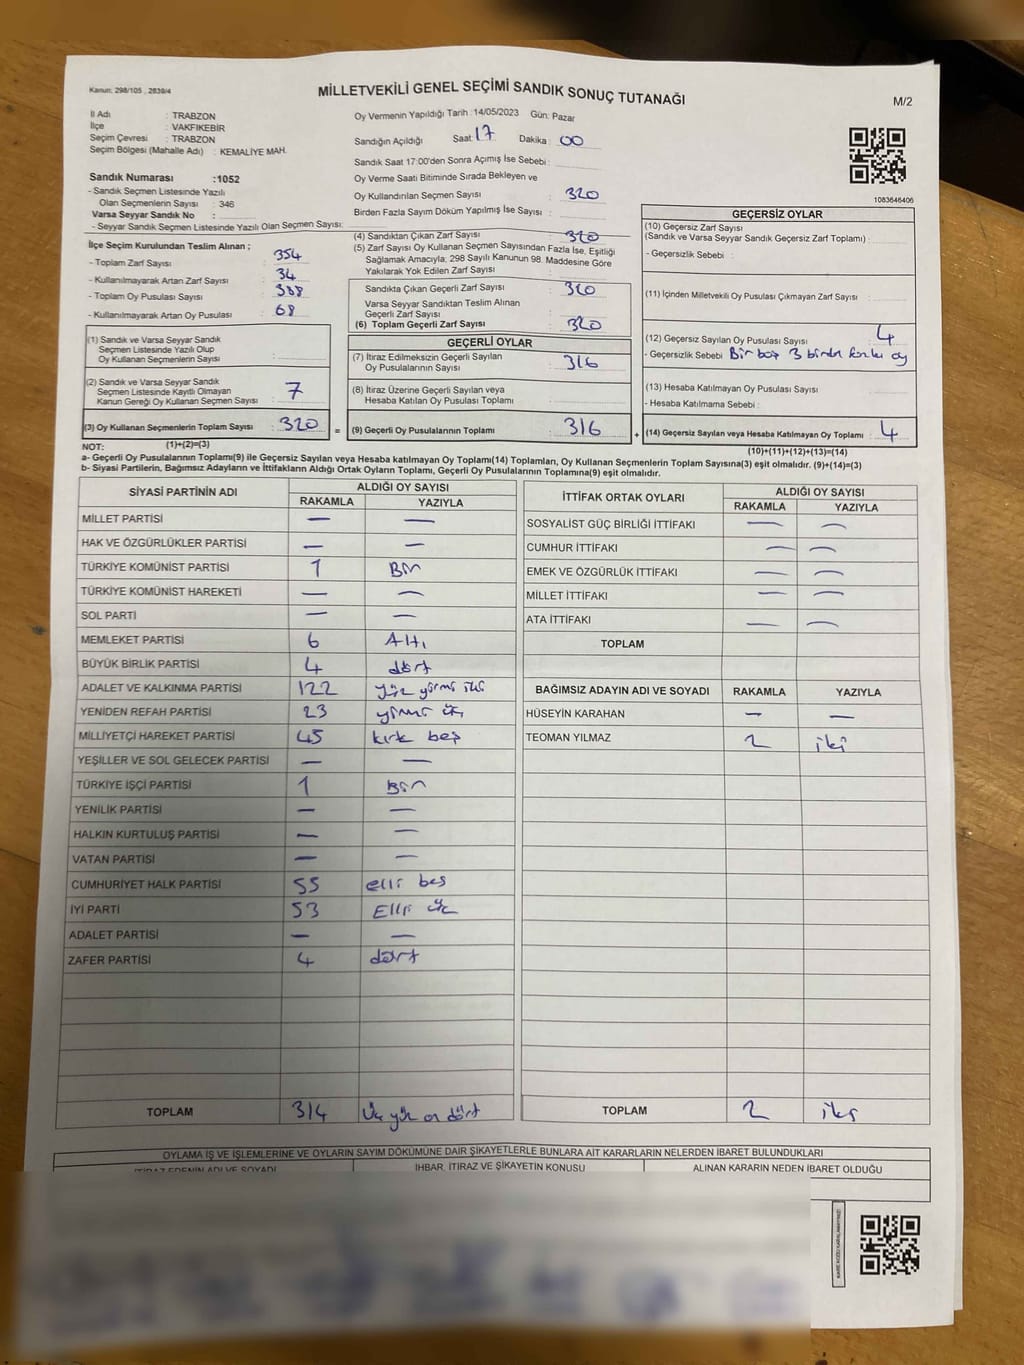 Kanun: 298/105 , 2839/4
MİLLETVEKİLİ GENEL SEÇİMİ SANDIK SONUÇ TUTANAĞI
M/2
İl Adı : TRABZON
İlçe : VAKFIKEBİR
Seçim Çevresi : TRABZON
Seçim Bölgesi (Mahalle Adı) : KEMALİYE MAH.
Oy Vermenin Yapıldığı Tarih : 14/05/2023 Gün: Pazar
Sandığın Açıldığı Saat: 17 Dakika : 00
Sandık Saat 17:00'den Sonra Açımış İse Sebebi :
Oy Verme Saati Bitiminde Sırada Bekleyen ve
Oy Kullandırılan Seçmen Sayısı : 320
Birden Fazla Sayım Döküm Yapılmış İse Sayısı :
1083646406
Sandık Numarası :1052
- Sandık Seçmen Listesinde Yazılı
Olan Seçmenlerin Sayısı : 346
Varsa Seyyar Sandık No :
- Seyyar Sandık Seçmen Listesinde Yazılı Olan Seçmen Sayısı:
İlçe Seçim Kurulundan Teslim Alınan ;
- Toplam Zarf Sayısı : 354
- Kullanılmayarak Artan Zarf Sayısı : 34
- Toplam Oy Pusulası Sayısı : 388
- Kullanılmayarak Artan Oy Pusulası : 68
(1) Sandık ve Varsa Seyyar Sandık
Seçmen Listesinde Yazılı Olup
Oy Kullanan Seçmenlerin Sayısı :
(2) Sandık ve Varsa Seyyar Sandık
Seçmen Listesinde Kayıtlı Olmayan
Kanun Gereği Oy Kullanan Seçmen Sayısı : 7
(3) Oy Kullanan Seçmenlerin Toplam Sayısı : 320
(1)+(2)=(3)
(4) Sandıktan Çıkan Zarf Sayısı : 320
(5) Zarf Sayısı Oy Kullanan Seçmen Sayısından Fazla İse, Eşitliği
Sağlamak Amacıyla, 298 Sayılı Kanunun 98. Maddesine Göre
Yakılarak Yok Edilen Zarf Sayısı :
Sandıkta Çıkan Geçerli Zarf Sayısı : 320
Varsa Seyyar Sandıktan Teslim Alınan
Geçerli Zarf Sayısı :
(6) Toplam Geçerli Zarf Sayısı : 320
GEÇERLİ OYLAR
(7) İtiraz Edilmeksizin Geçerli Sayılan
Oy Pusulalarının Sayısı : 316
(8) İtiraz Üzerine Geçerli Sayılan veya
Hesaba Katılan Oy Pusulası Toplamı :
= (9) Geçerli Oy Pusulalarının Toplamı : 316
GEÇERSİZ OYLAR
(10) Geçersiz Zarf Sayısı
(Sandık ve Varsa Seyyar Sandık Geçersiz Zarf Toplamı) :
- Geçersizlik Sebebi :
(11) İçinden Milletvekili Oy Pusulası Çıkmayan Zarf Sayısı :
(12) Geçersiz Sayılan Oy Pusulası Sayısı : 4
- Geçersizlik Sebebi : Bir boş 3 birden fazla oy
(13) Hesaba Katılmayan Oy Pusulası Sayısı :
- Hesaba Katılmama Sebebi :
+ (14) Geçersiz Sayılan veya Hesaba Katılmayan Oy Toplamı : 4
(10)+(11)+(12)+(13)=(14)
NOT:
a- Geçerli Oy Pusulalarının Toplamı(9) ile Geçersiz Sayılan veya Hesaba katılmayan Oy Toplamı(14) Toplamları, Oy Kullanan Seçmenlerin Toplam Sayısına(3) eşit olmalıdır. (9)+(14)=(3)
b- Siyasi Partilerin, Bağımsız Adayların ve İttifakların Aldığı Ortak Oyların Toplamı, Geçerli Oy Pusulalarının Toplamına(9) eşit olmalıdır.
SİYASİ PARTİNİN ADI ALDIĞI OY SAYISI
RAKAMLA YAZIYLA
MİLLET PARTİSİ — —
HAK VE ÖZGÜRLÜKLER PARTİSİ — —
TÜRKİYE KOMÜNİST PARTİSİ 1 Bir
TÜRKİYE KOMÜNİST HAREKETİ — —
SOL PARTİ — —
MEMLEKET PARTİSİ 6 Altı
BÜYÜK BİRLİK PARTİSİ 4 dört
ADALET VE KALKINMA PARTİSİ 122 yüz yirmi iki
YENİDEN REFAH PARTİSİ 23 yirmi üç
MİLLİYETÇİ HAREKET PARTİSİ 45 kırk beş
YEŞİLLER VE SOL GELECEK PARTİSİ — —
TÜRKİYE İŞÇİ PARTİSİ 1 Bir
YENİLİK PARTİSİ — —
HALKIN KURTULUŞ PARTİSİ — —
VATAN PARTİSİ — —
CUMHURİYET HALK PARTİSİ 55 elli beş
İYİ PARTİ 53 Elli üç
ADALET PARTİSİ — —
ZAFER PARTİSİ 4 dört
TOPLAM 314 Üç yüz on dört
İTTİFAK ORTAK OYLARI ALDIĞI OY SAYISI
RAKAMLA YAZIYLA
SOSYALİST GÜÇ BİRLİĞİ İTTİFAKI — —
CUMHUR İTTİFAKI — —
EMEK VE ÖZGÜRLÜK İTTİFAKI — —
MİLLET İTTİFAKI — —
ATA İTTİFAKI — —
TOPLAM
BAĞIMSIZ ADAYIN ADI VE SOYADI RAKAMLA YAZIYLA
HÜSEYİN KARAHAN — —
TEOMAN YILMAZ 2 iki
TOPLAM 2 iki
OYLAMA İŞ VE İŞLEMLERİNE VE OYLARIN SAYIM DÖKÜMÜNE DAİR ŞİKAYETLERLE BUNLARA AİT KARARLARIN NELERDEN İBARET BULUNDUKLARI
İTİRAZ EDENİN ADI VE SOYADI İHBAR, İTİRAZ VE ŞİKAYETİN KONUSU ALINAN KARARIN NEDEN İBARET OLDUĞU